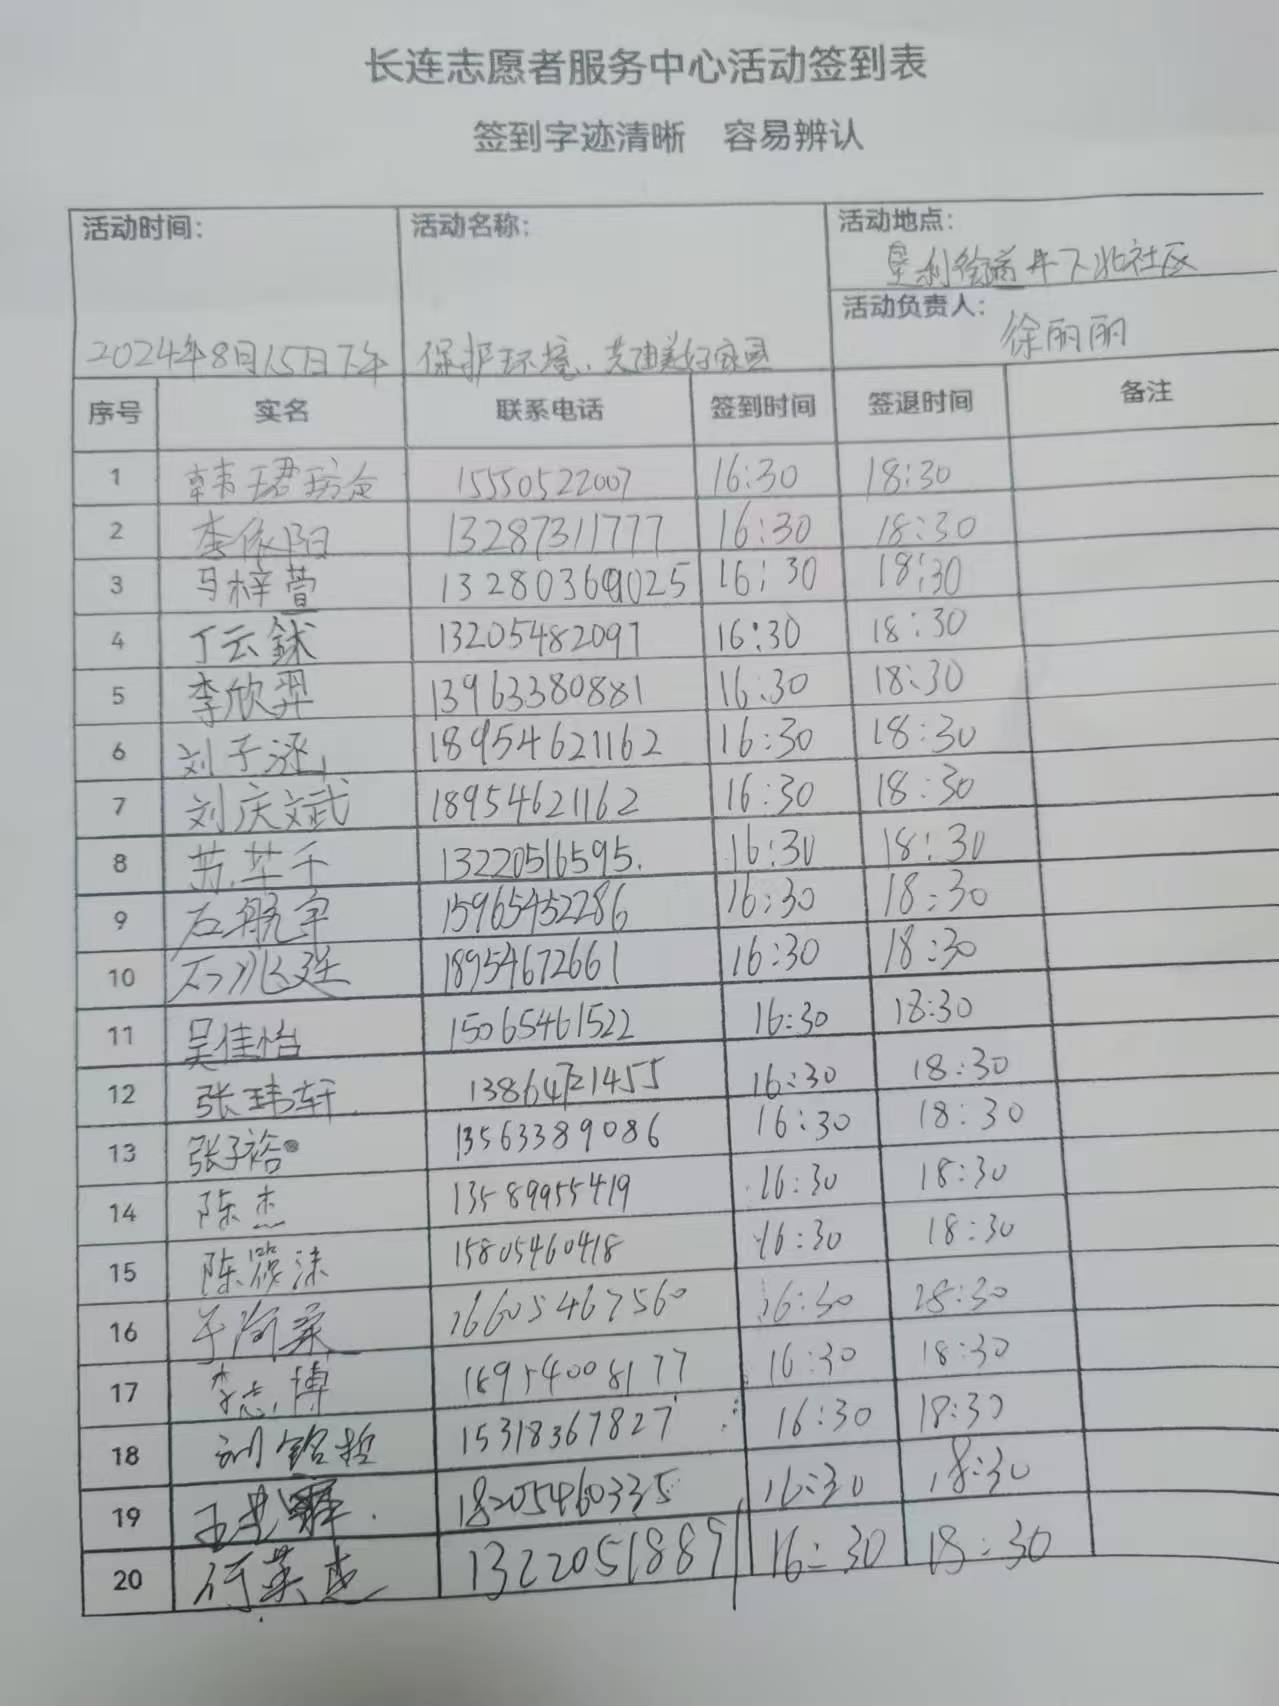 长连志愿者服务中心活动签到表
签到字迹清晰 容易辨认
活动时间: 活动名称: 活动地点:
垦利街道井下北社区
活动负责人: 徐丽丽
2024年8月15日下午 保护环境、共建美好家园
序号 实名 联系电话 签到时间 签退时间 备注
1 韩珺 15550522007 16:30 18:30
2 李依阳 13287311777 16:30 18:30
3 马梓萱 13280369025 16:30 18:30
4 丁云 13205482097 16:30 18:30
5 李欣羿 13963380881 16:30 18:30
6 刘子涵 18954621162 16:30 18:30
7 刘庆斌 18954621162 16:30 18:30
8 13220516595. 16:30 18:30
9 石航宇 15965452286 16:30 18:30
10 石兆廷 18954672661 16:30 18:30
11 吴佳怡 15065461522 16:30 18:30
12 张玮轩 13864721455 16:30 18:30
13 张子裕 13563389086 16:30 18:30
14 陈杰 13589955419 16:30 18:30
15 陈筱沫 15805460418 16:30 18:30
16 16605467560 16:30 18:30
17 李志博 18954008177 16:30 18:30
18 刘铭哲 15318367827 16:30 18:30
19 18205460335 16:30 18:30
20 何英杰 1322051889 16:30 18:30